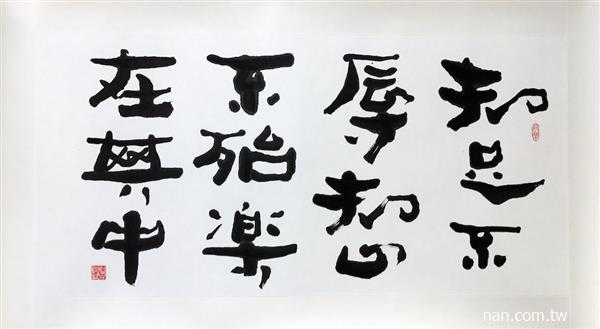 知足不
辱知止
不殆樂
在其中
nan.com.tw